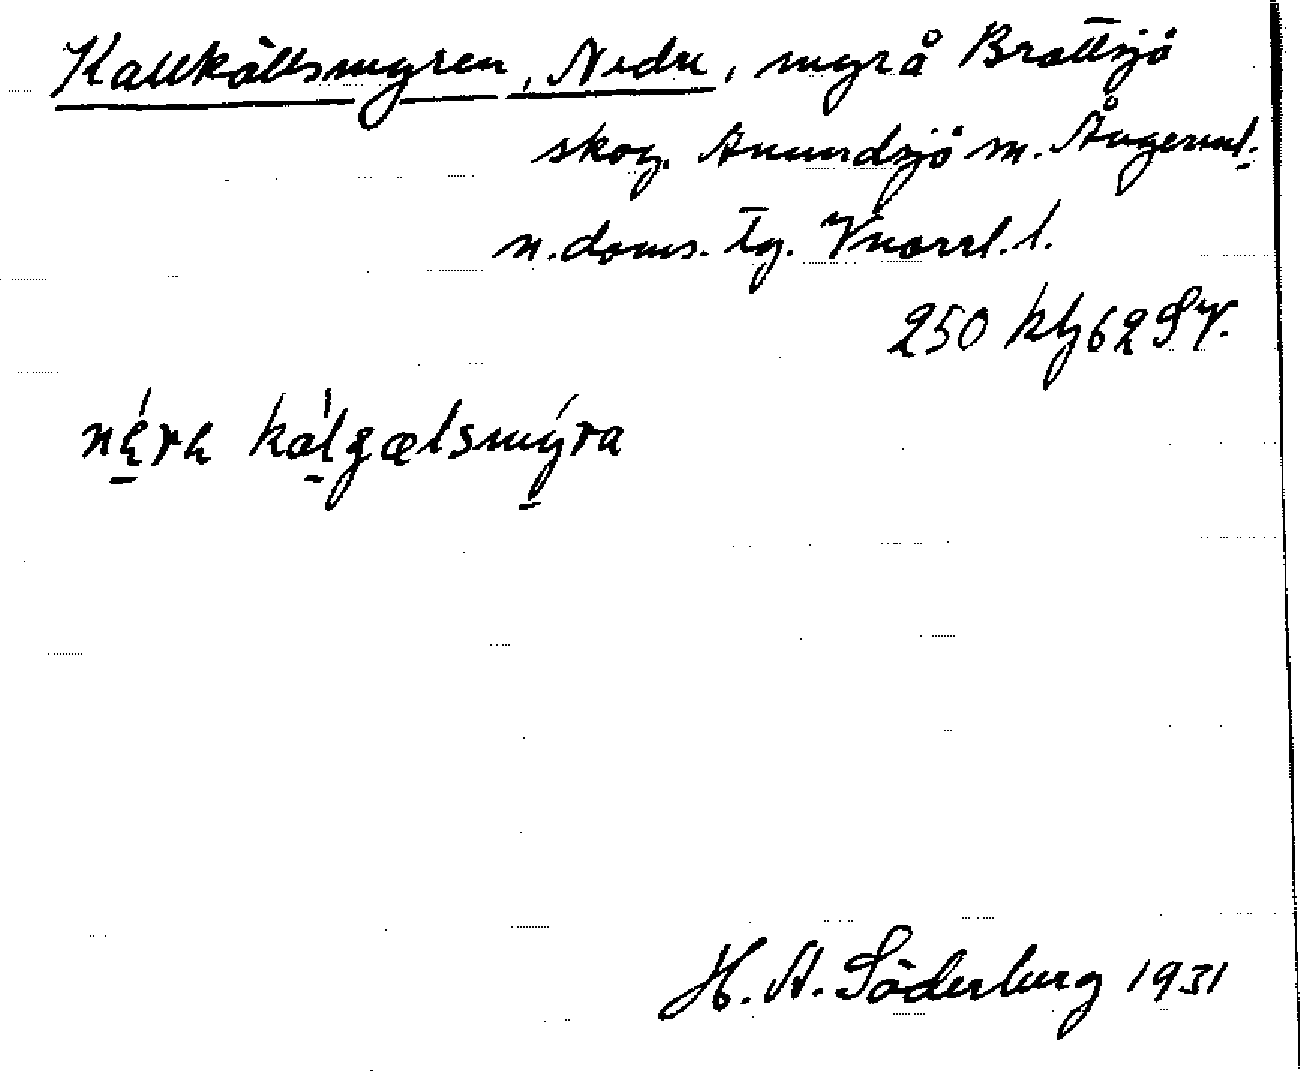 Kallkällsmyren, Nedre, myr å Brattsjö
skog. Anundsjö sn. Ångerml.
n. doms. tg. Vnorrl. l.
250 kbz 62 SV.
kálgælsmýra
H. A. Söderberg 1931